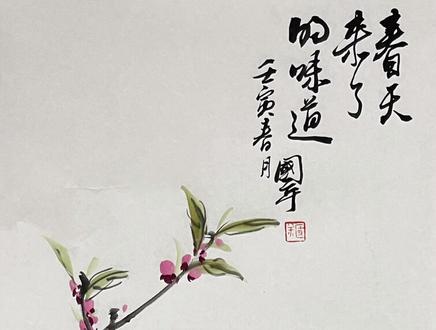 春天
来了
的味道
壬寅春月
國平